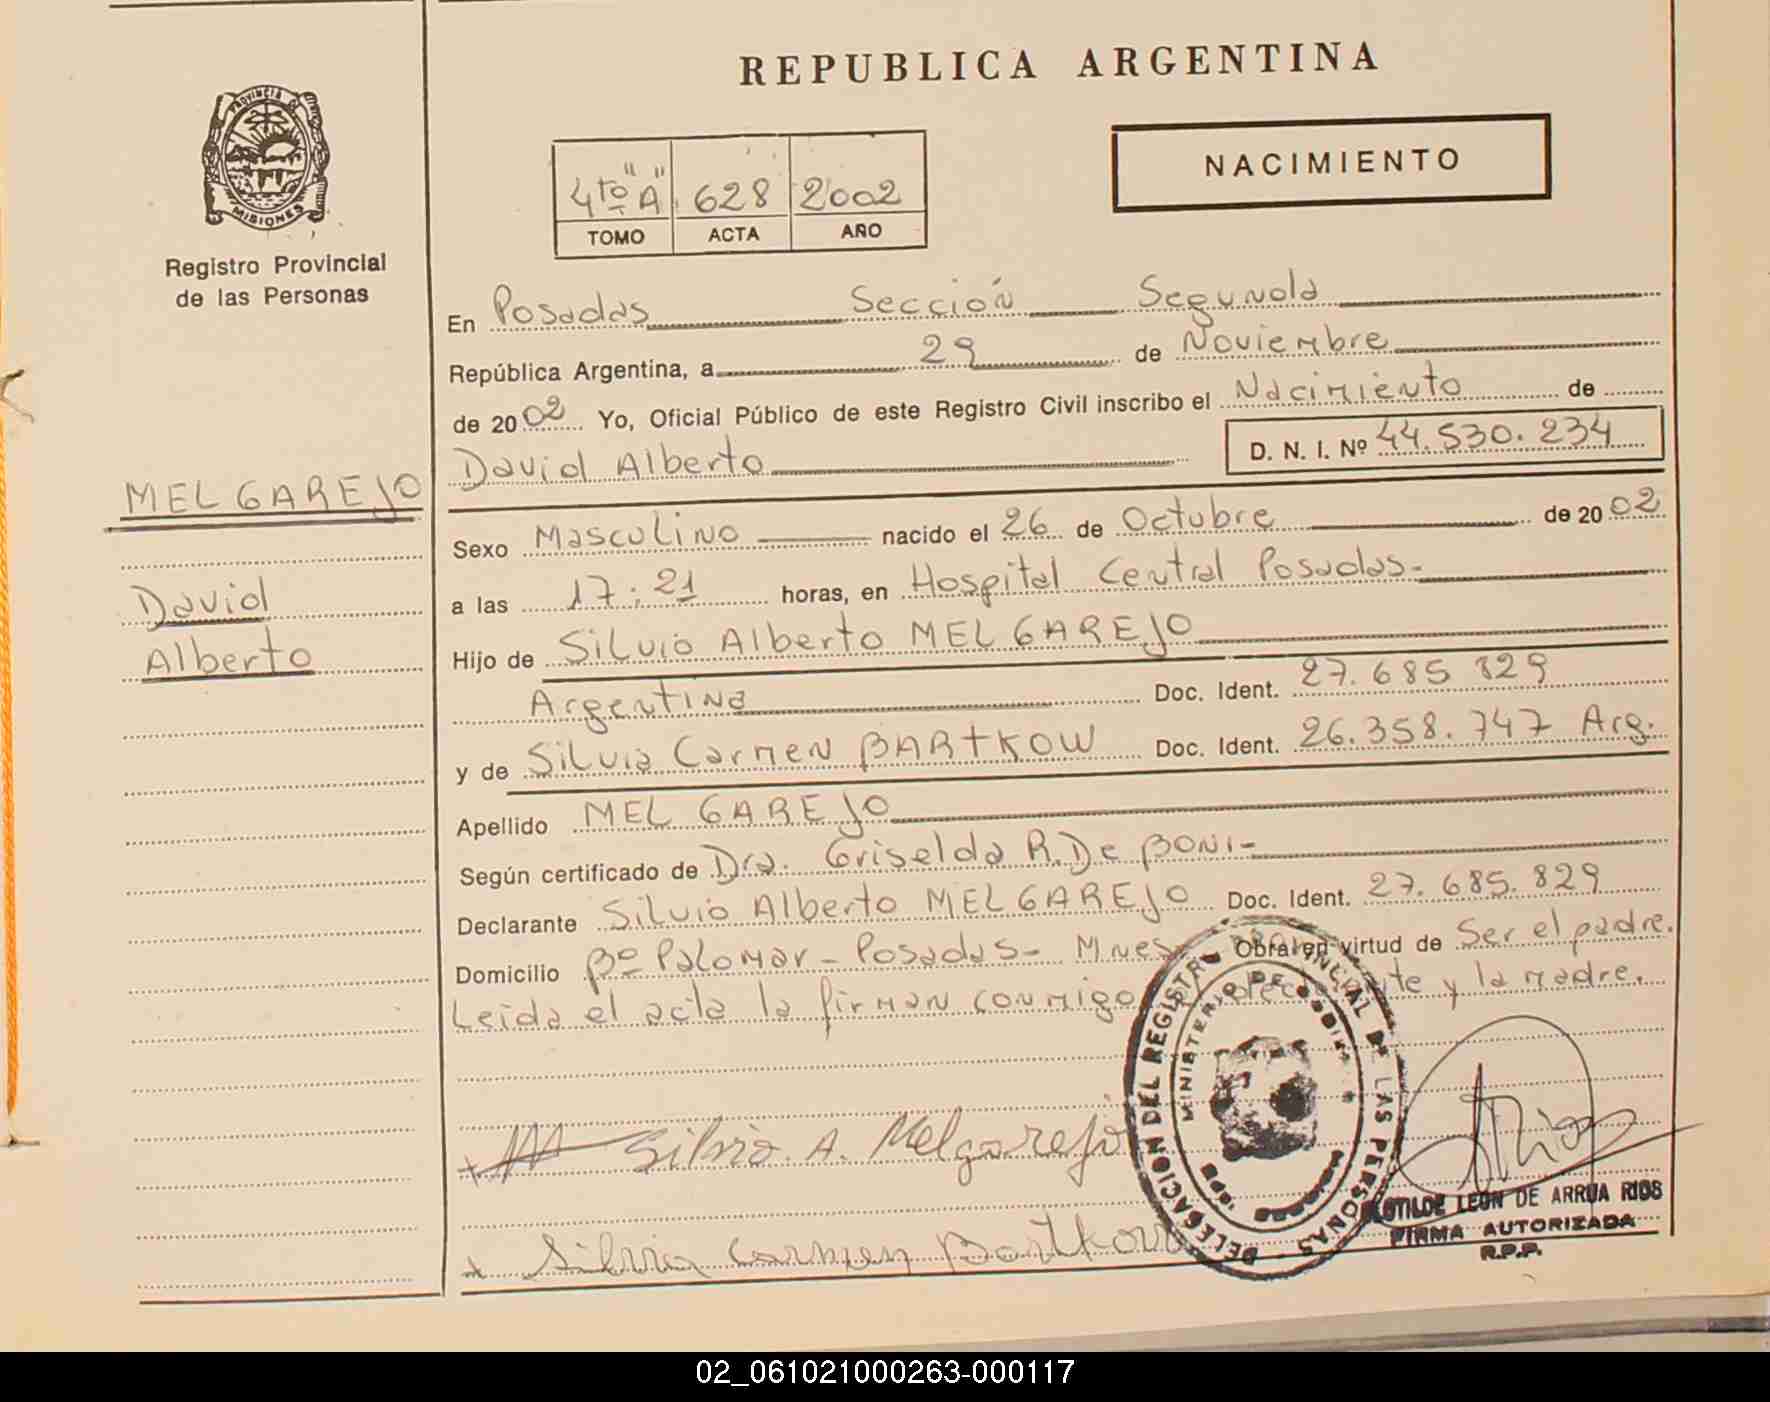 REPUBLICA ARGENTINA
PROVINCIA DE
MISIONES
Registro Provincial
de las Personas
NACIMIENTO
4to "A" 628 2002
TOMO ACTA AÑO
En Posadas Sección Segunda
República Argentina, a 29 de Noviembre
de 2002 Yo, Oficial Público de este Registro Civil inscribo el Nacimiento de
David Alberto D. N. I. Nº 44.530.234
MELGAREJO
David
Alberto
Sexo Masculino nacido el 26 de Octubre de 2002
a las 17:21 horas, en Hospital Central Posadas-
Hijo de Silvio Alberto MELGAREJO
Argentina Doc. Ident. 27.685 829
y de Silvia Carmen BARTKOW Doc. Ident. 26.358.747 Arg.
Apellido MELGAREJO
Según certificado de Dra. Griselda R. De BONI-
Declarante Silvio Alberto MELGAREJO Doc. Ident. 27.685.829
Domicilio Bº Palomar - Posadas - Mnes Obra en virtud de Ser el padre.
Leida el acta la firman conmigo y la madre.
Silvio A. Melgarejo
Silvia Carmen Bartkow
DELEGACION DEL REGISTRO PROVINCIAL DE LAS PERSONAS
MINISTERIO DE
LEON DE ARRUA RIOS
FIRMA AUTORIZADA
R.P.P.
02_061021000263-000117